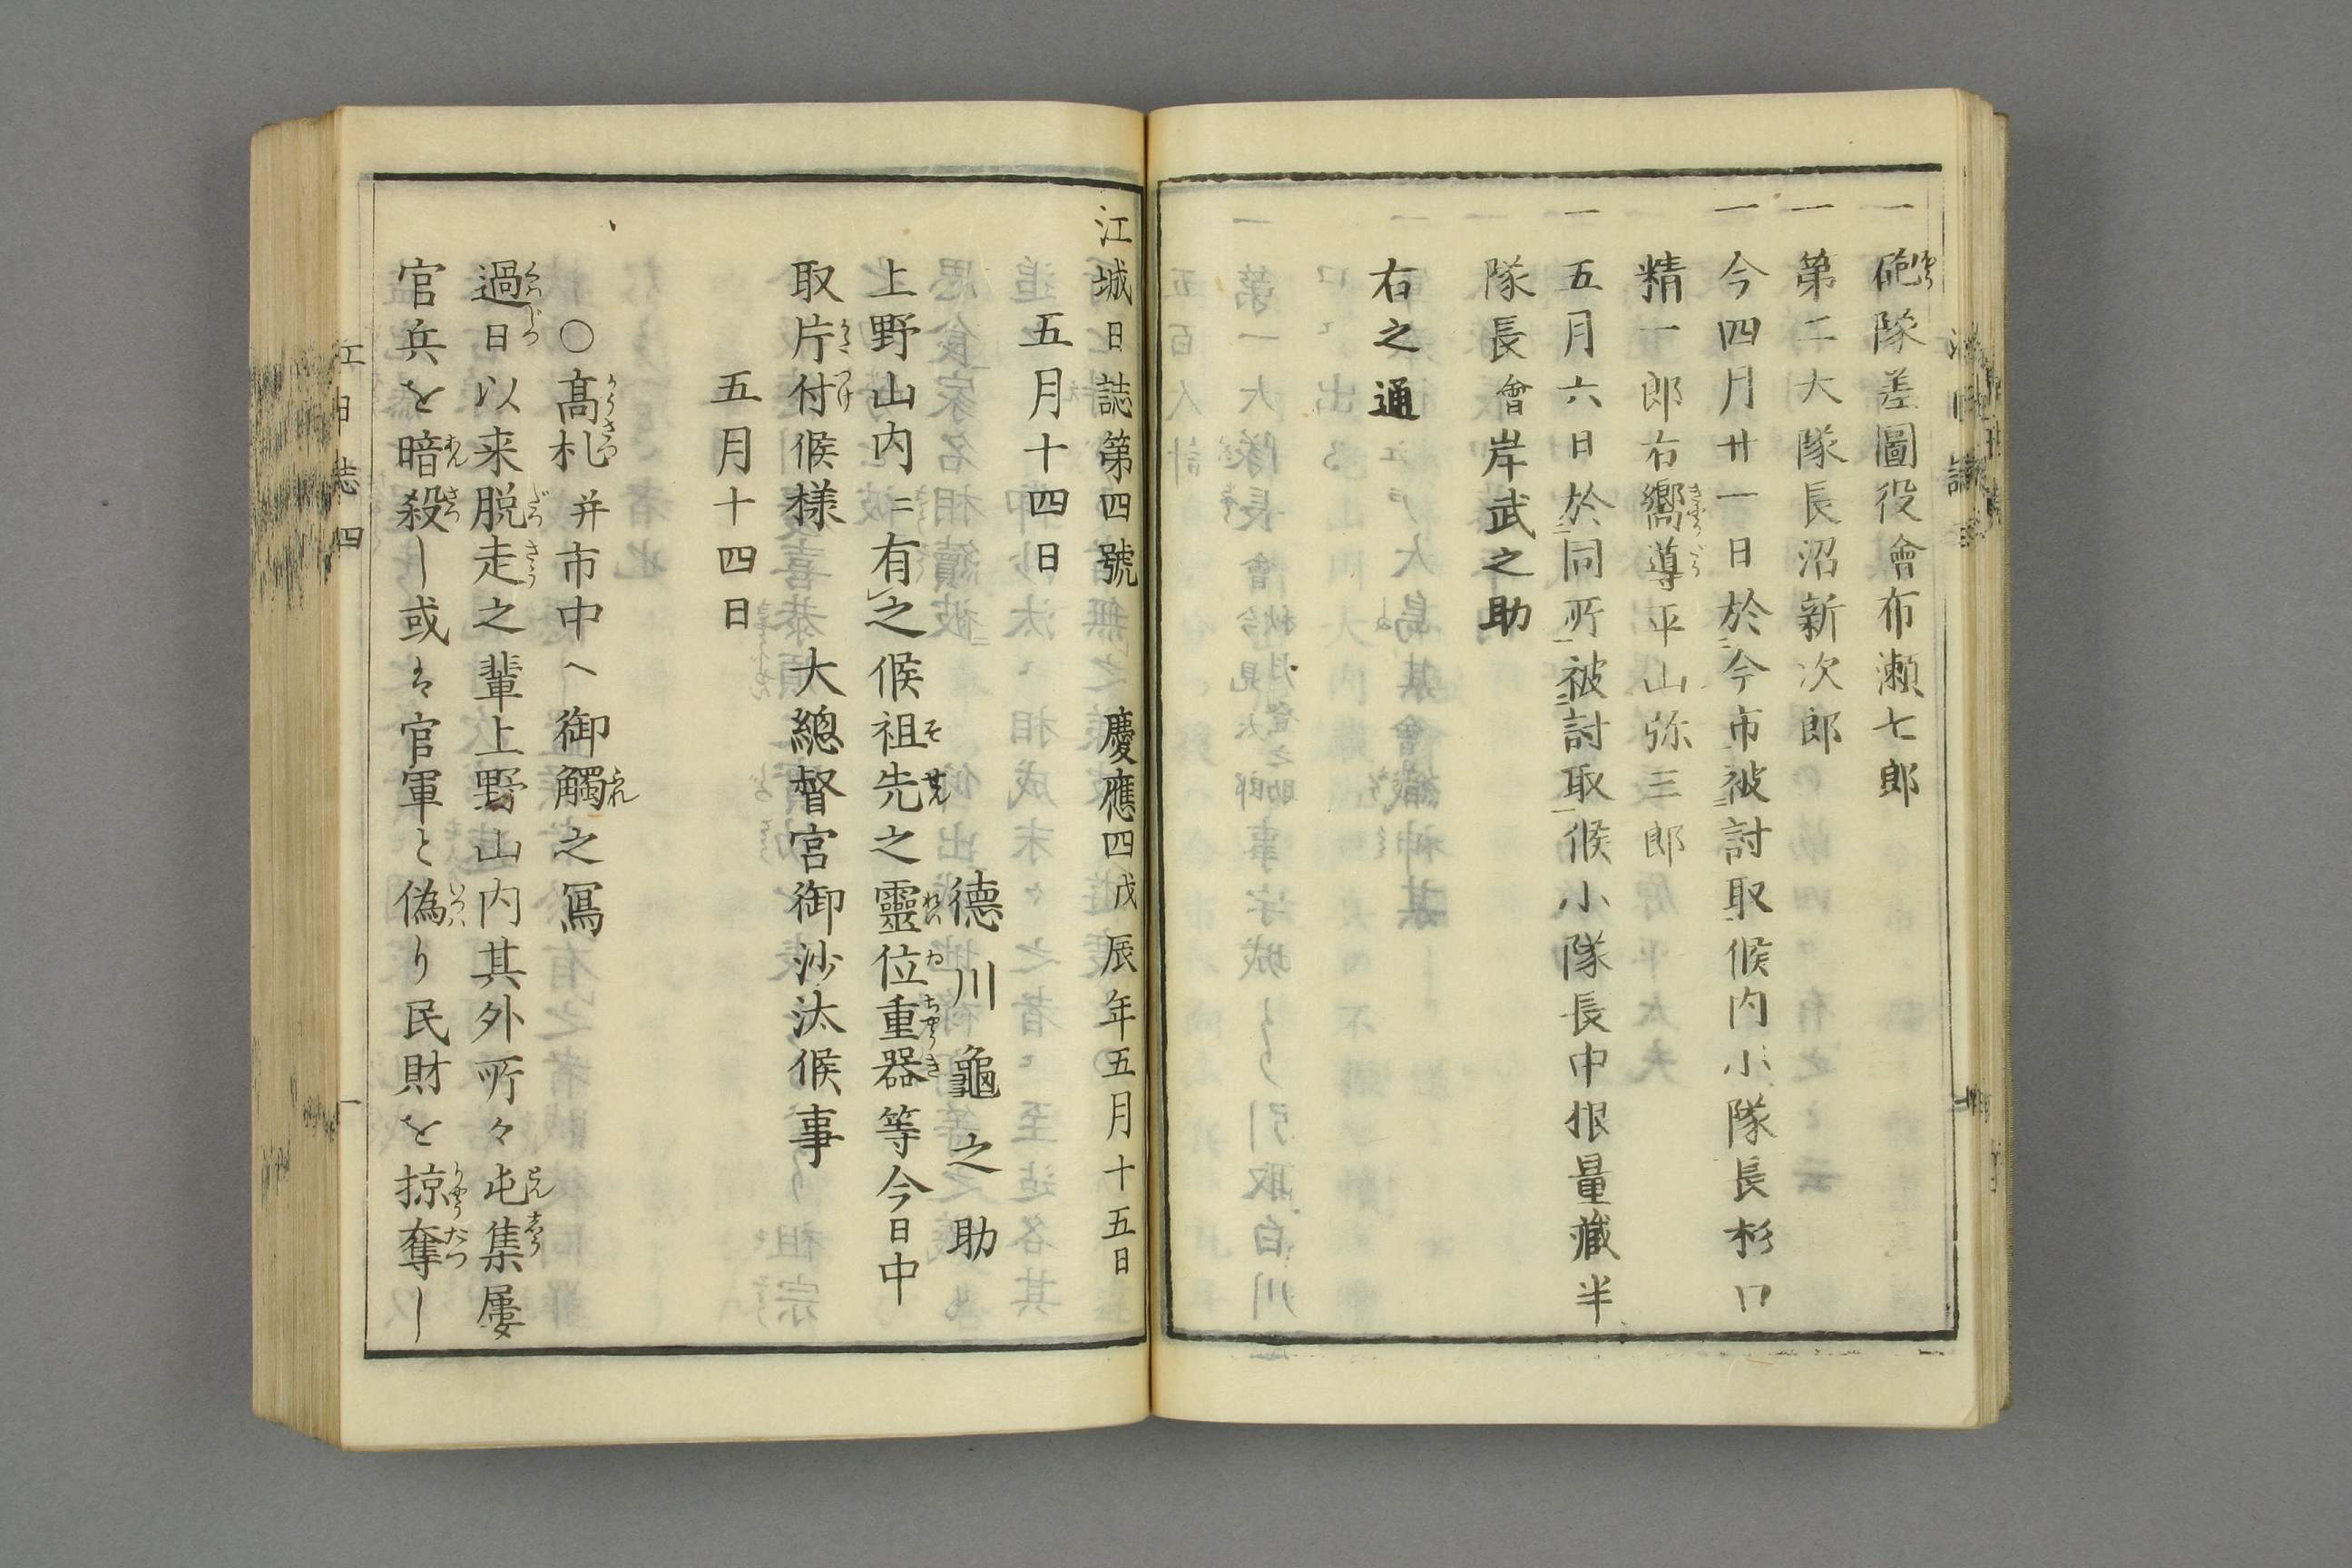 一砲隊差圖役會布瀬七郎
一第二大隊長沼新次郎
一今四月廿一日於今市被討取候内小隊長杉口
精一郎右嚮導平山弥三郎
一五月六日於同所被討取候小隊長中根量藏半
隊長會岸武之助
右之通
江城日誌第四號 慶應四戊辰年五月十五日
五月十四日
德川龜之助
上野山内ニ有之候祖先之靈位重器等今日中
取片付候様大總督宮御沙汰候事
五月十四日
○髙札并市中ヘ御觸之冩
過日以来脱走之輩上野山内其外所々屯集屢
官兵を暗殺し或は官軍と偽り民財を掠奪し
江日誌四 一